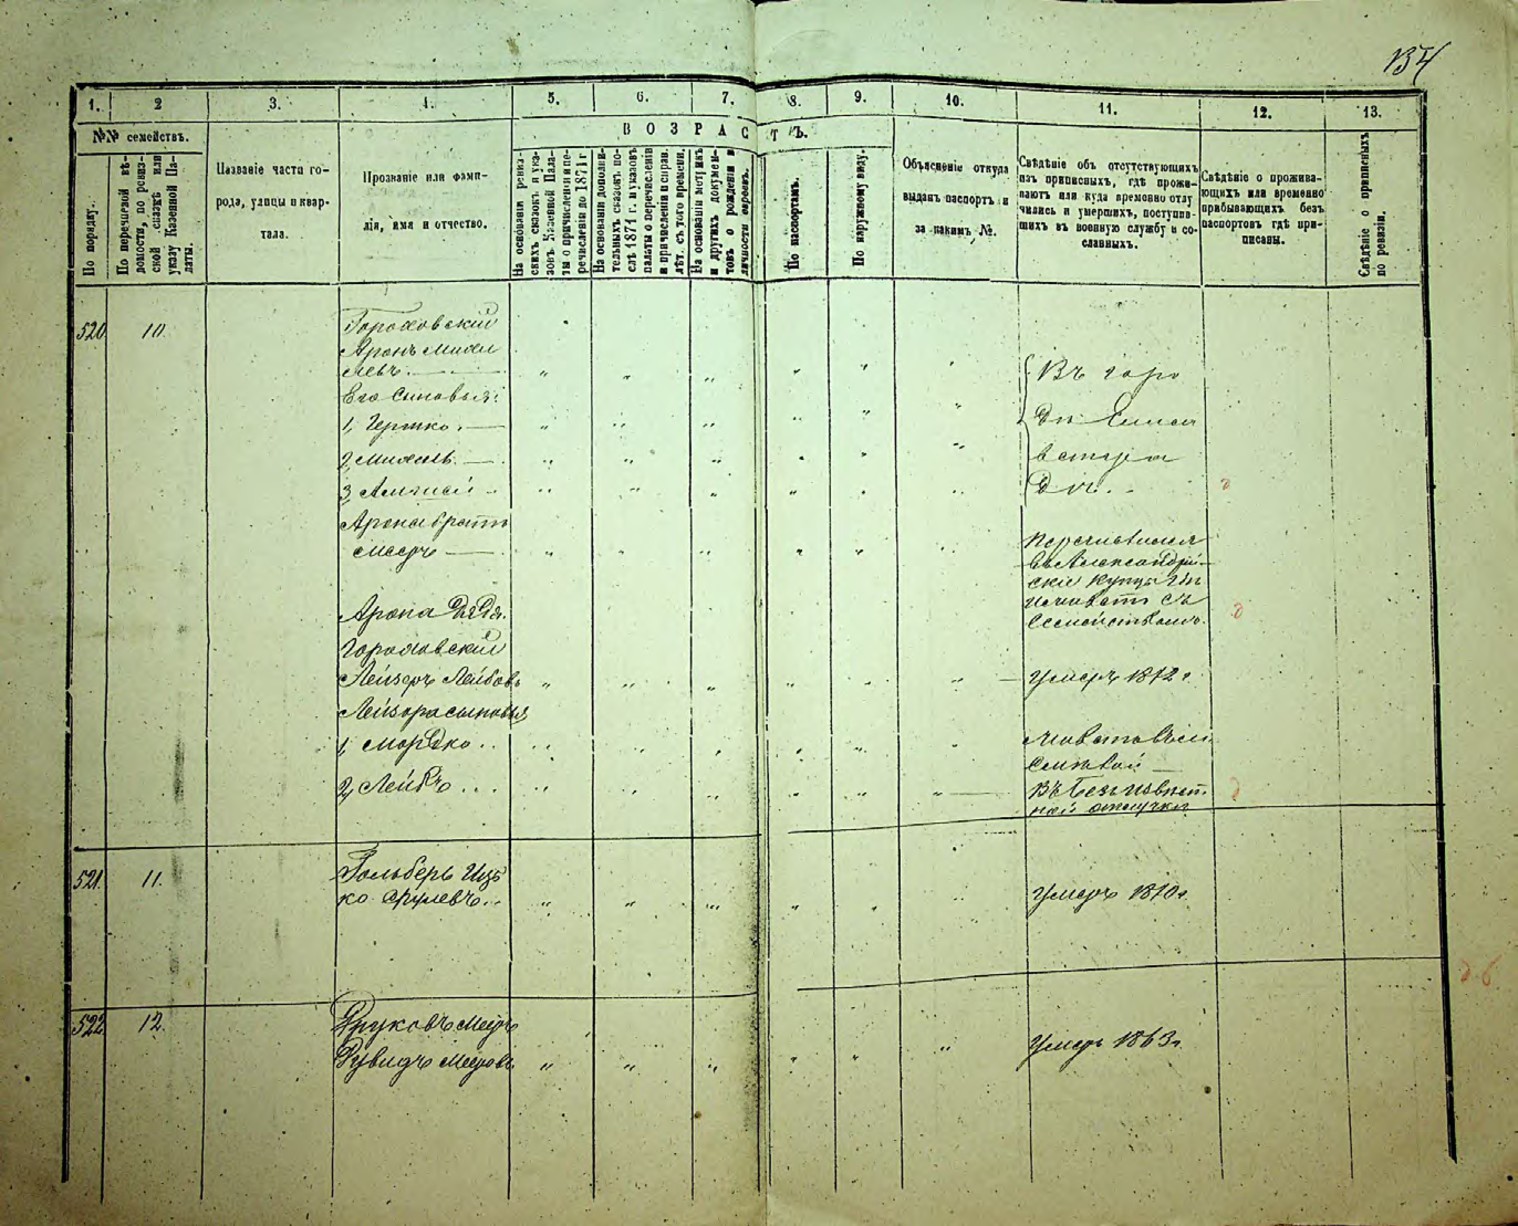 134
1. 2 3. 4. 5. 6. 7. 8. 9. 10. 11. 12. 13.
№№ семействъ.
ВОЗРАСТЪ.
По порядку.
По перечневой вѣ-
домости, по ревиз-
ской сказкѣ или
указу Казенной Па-
латы.
Названіе части го-
рода, улицы и квар-
тала.
Прозваніе или фами-
лія, имя и отчество.
На основаніи ревиз-
скихъ сказокъ и ука-
зовъ Казенной Пала-
ты о причисленіи и пе-
речисленіи до 1871 г
На основаніи дополни-
тельныхъ сказокъ по-
слѣ 1871 г. и указовъ
палаты о перечисленіи
и причисленіи и справ.
лѣт. съ того времени.
На основаніи метрикъ
и другихъ докумен-
товъ о рожденіи и
личности евреевъ.
По паспортамъ.
По наружному виду.
Объясненіе откуда
выданъ паспортъ и
за какимъ №.
Свѣдѣніе объ отсутствующихъ
изъ приписныхъ, гдѣ прожи-
ваютъ или куда временно отлу
чились и умершихъ, поступив-
шихъ въ военную службу и со-
сланныхъ.
Свѣдѣніе о прожива-
ющихъ или временно
прибывающихъ безъ
паспортовъ гдѣ при-
писаны.
Свѣдѣніе о приписныхъ
по ревизіи.
520 10.
Гороховскій
Аронъ Михел
левъ.
Его Сыновья:
1, Гершко.
2, Михель.
3,
Арона братъ
Мееръ
Въ горо
дѣ Елиса
ветгра
дѣ.
Перечислился
въ Александрій-
скіе купцы
съ
Семействомъ.
Арона дядя.
Гороховскій
Лейзеръ Лейбовъ
Умеръ 1872 г.
Лейзора сыновья
1, Мордко..
2, Лейбъ...
Въ безъизвѣст
ной отлучкѣ
521. 11.
Гольберъ Иць
ко Срулевъ..
Умеръ 1870 г.
522 12.
Друковъ Меер
Рувидъ Мееровъ
Умеръ 1863 г.